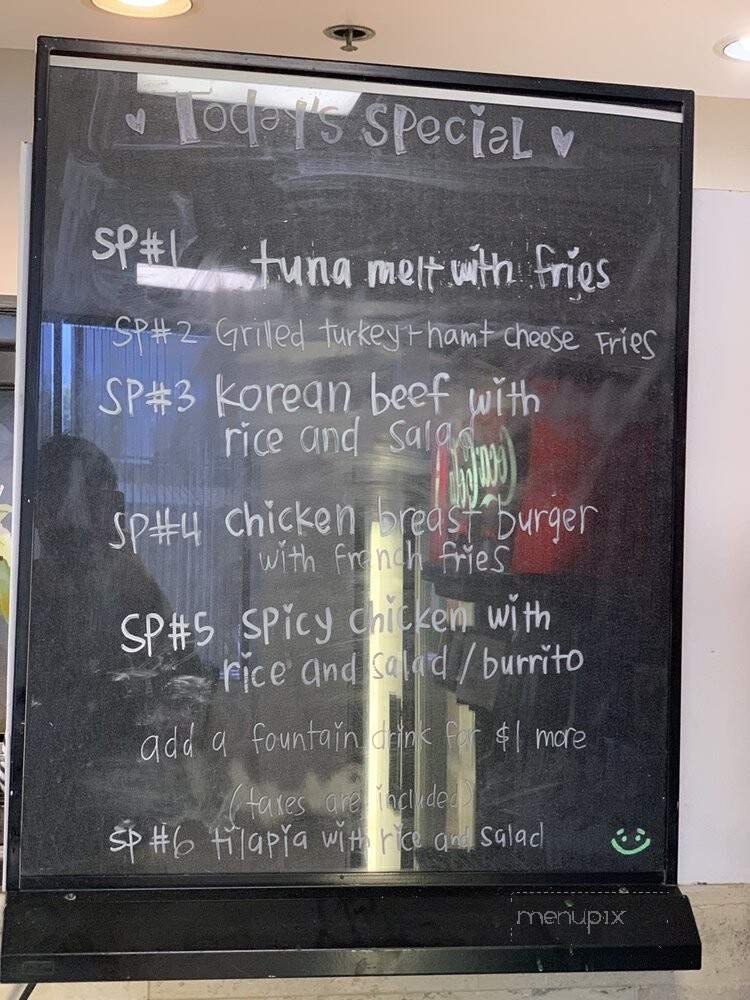 Today's Special
SP#1 tuna melt with fries
SP#2 Grilled turkey + ham + cheese Fries
SP#3 korean beef with
rice and salad
SP#4 chicken breast burger
with french fries
SP#5 spicy chicken with
rice and salad / burrito
add a fountain drink for $1 more
(taxes are included)
SP#6 tilapia with rice and salad
Coca-Cola
menupix